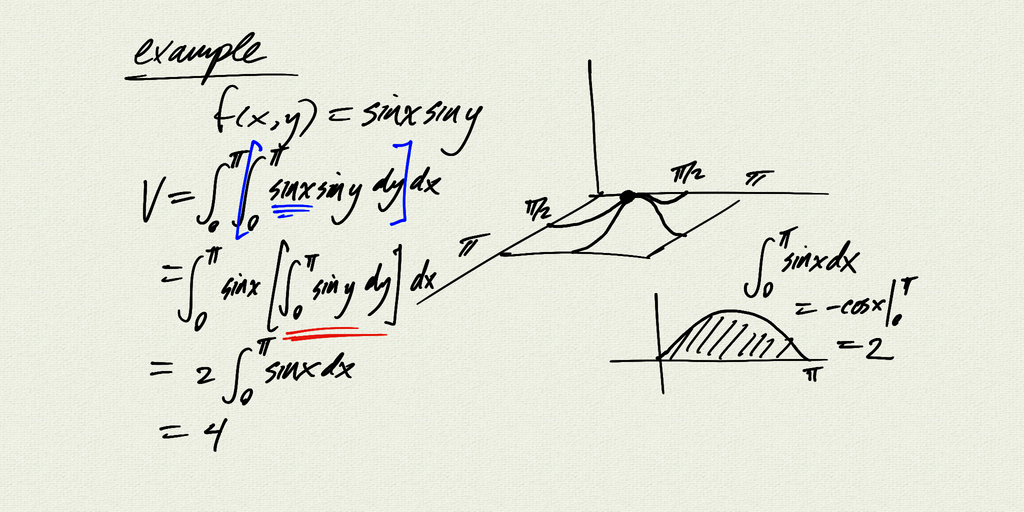 example
f(x,y) = sinx siny
V = ∫₀^π [∫₀^π sinx siny dy] dx
= ∫₀^π sinx [∫₀^π sin y dy] dx
= 2 ∫₀^π sinx dx
= 4
π/2
π
π/2
π
∫₀^π sinx dx
= -cosx|₀^π
= 2
π